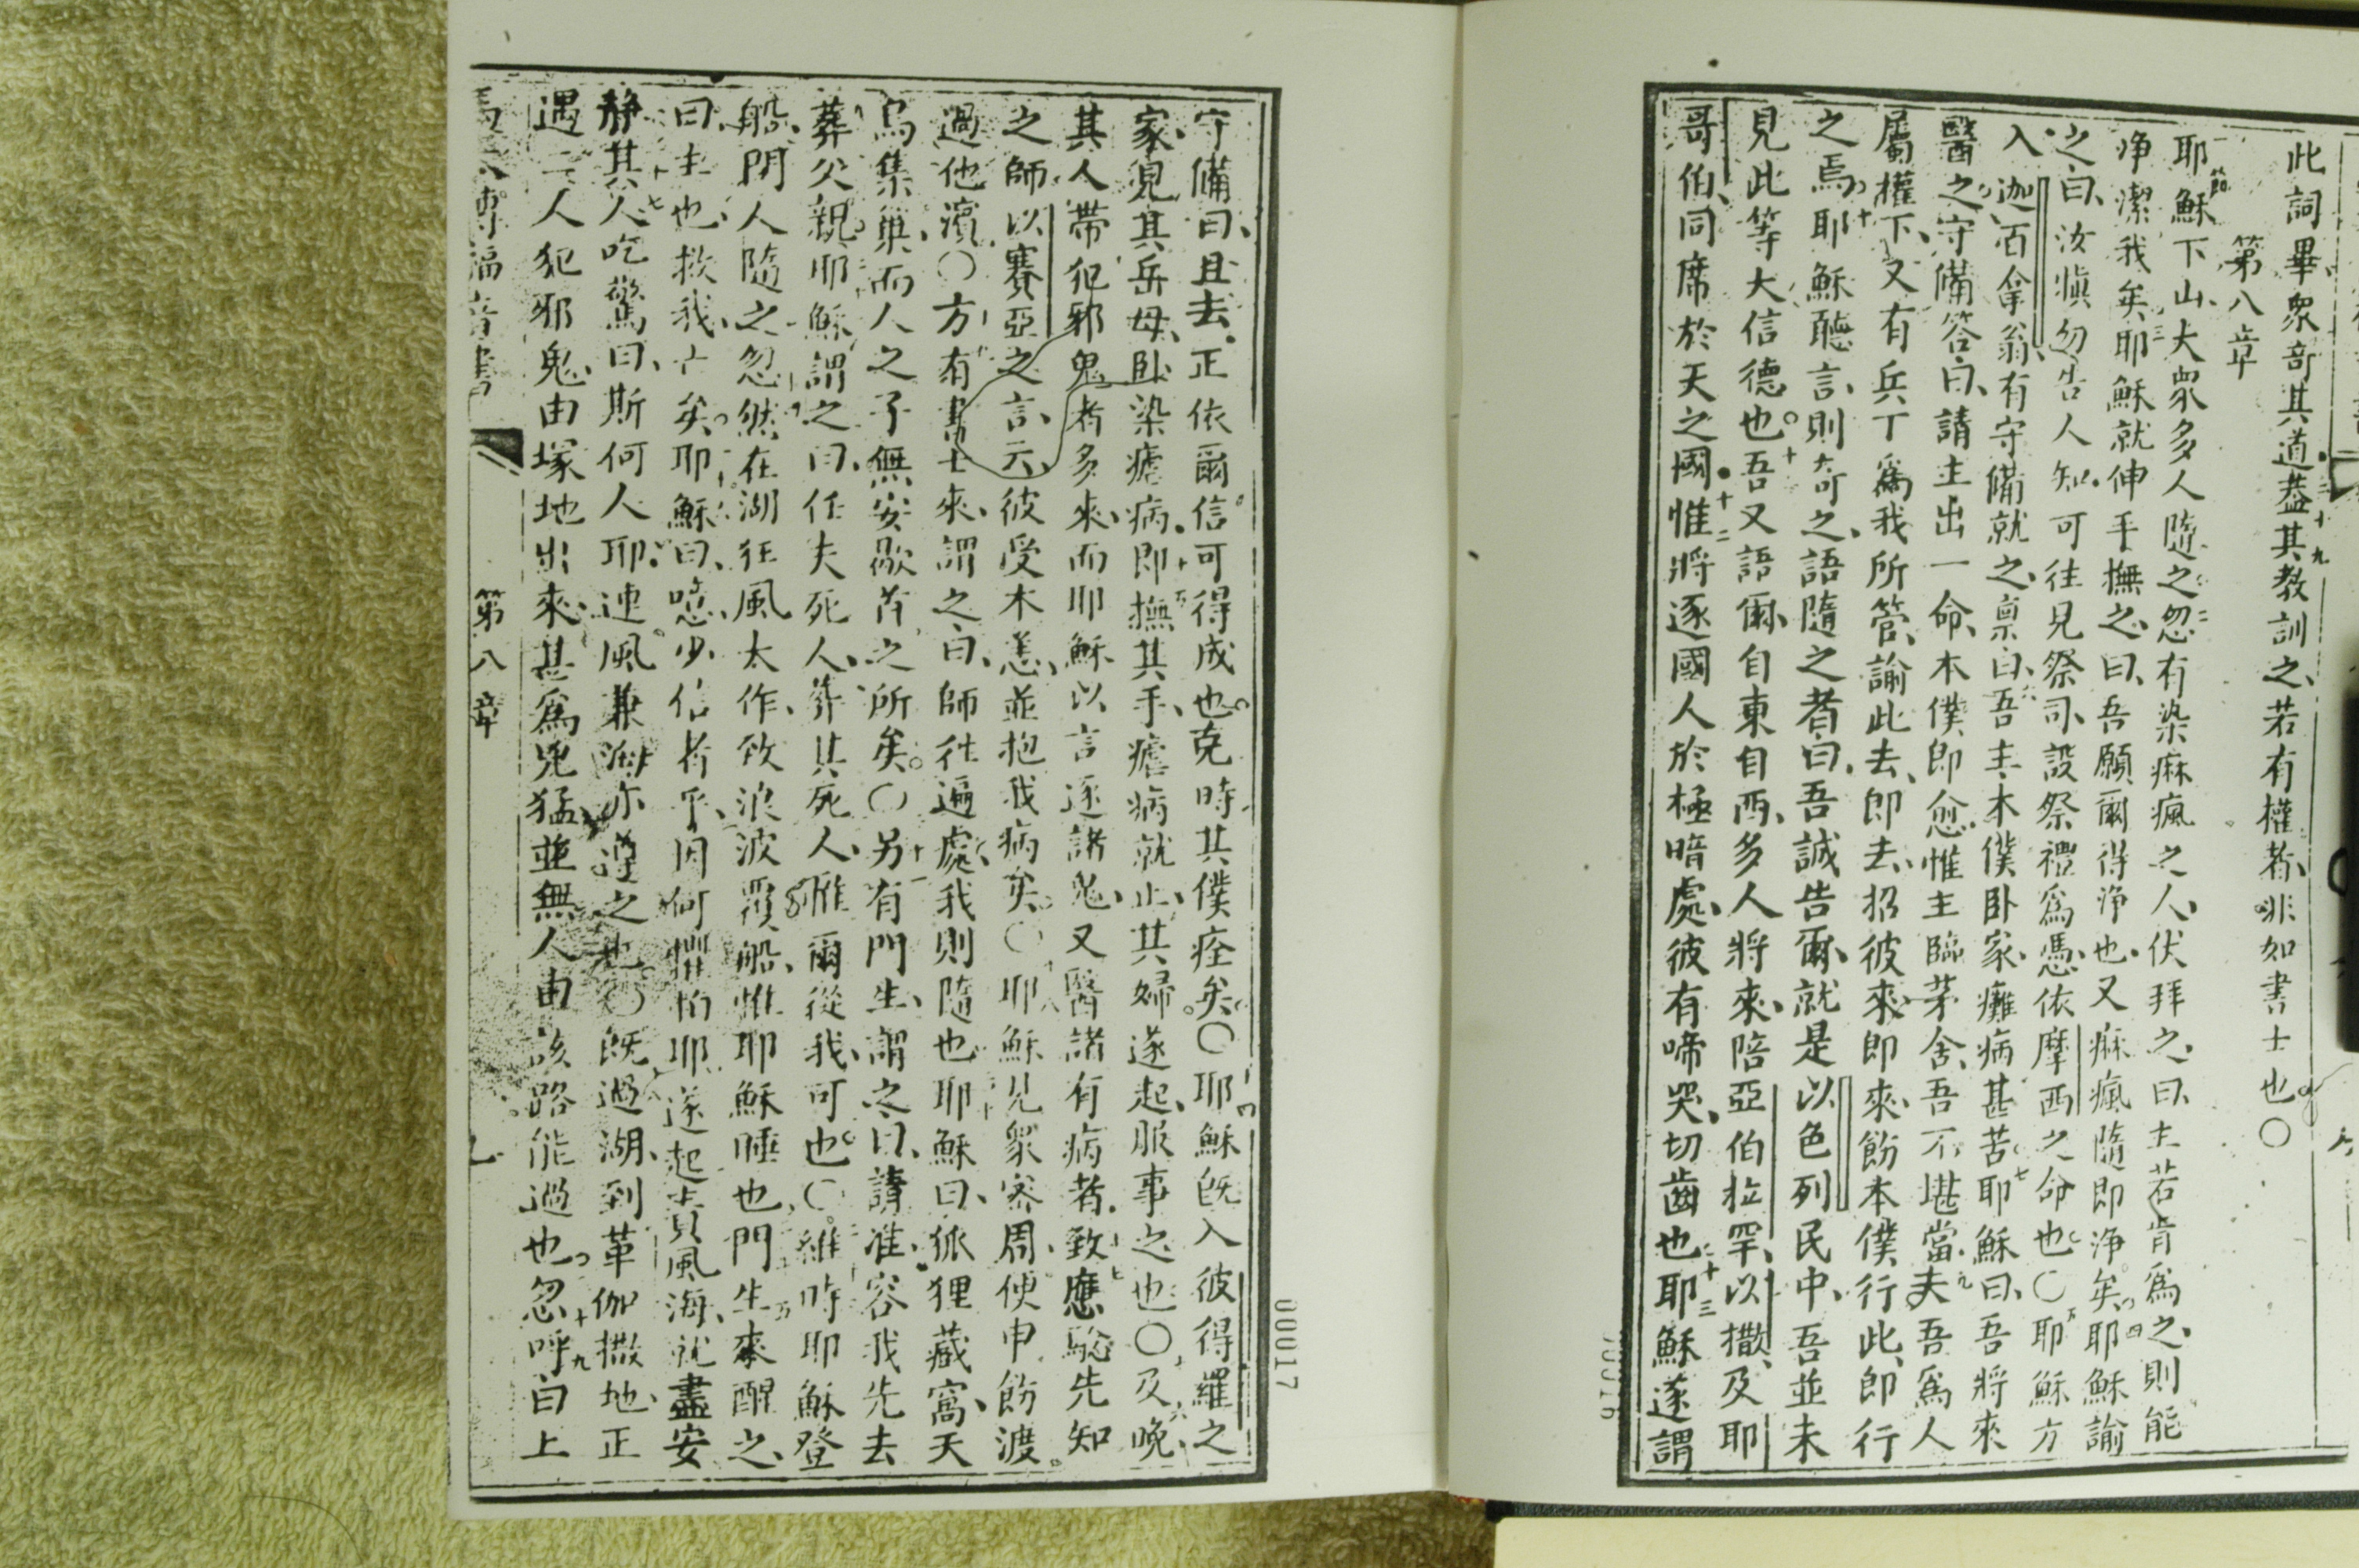 此詞畢眾奇其道蓋其教訓之若有權者非如書士也○
十九
第八章
耶穌下山大眾多人隨之忽有染痳瘋之人伏拜之曰主若肯爲之則能
一節
淨潔我矣耶穌就伸手撫之曰吾願爾得淨也又痳瘋隨即淨矣耶穌諭
之曰汝慎勿告人知可往見祭司設祭禮爲憑依摩西之命也○耶穌方
入迦百拿翁有守備就之禀曰吾主本僕卧家癱病甚苦耶穌曰吾將來
醫之守備答曰請主出一命本僕即愈惟主臨茅舍吾不堪當夫吾爲人
屬權下又有兵丁爲我所管諭此去即去招彼來即來飭本僕行此即行
之焉耶穌聽言則奇之語隨之者曰吾誠告爾就是以色列民中吾並未
見此等大信德也吾又語爾自東自西多人將來陪亞伯拉罕以撒及耶
哥伯同席於天之國惟將逐國人於極暗處彼有啼哭切齒也耶穌遂謂
十二
十三
守備曰且去正依爾信可得成也克時其僕痊矣○耶穌既入彼得羅之
家見其岳母卧染瘧病即撫其手瘧病就止其婦遂起服事之也○及晚
其人帶犯邪鬼者多來而耶穌以言逐諸鬼又醫諸有病者致應驗先知
之師以賽亞之言云彼受本恙並抱我病矣○耶穌見眾密周便申飭渡
過他濱○方有書士來謂之曰師往遍處我則隨也耶穌曰狐狸藏窩天
鳥集巢而人之子無安歇首之所矣○另有門生謂之曰請准容我先去
葬父親耶穌謂之曰任夫死人葬其死人惟爾從我可也○維時耶穌登
船門人隨之忽然在湖狂風大作致浪波覆船惟耶穌睡也門生來醒之
曰主也救我亡矣耶穌曰噫少信者乎因何懼怕耶遂起責風海就盡安
靜其人吃驚曰斯何人耶連風兼海亦遵之也○既過湖到革伽撒地正
遇二人犯邪鬼由塚地出來甚爲兇猛並無人由該路能過也忽呼曰上
十九
傳福音書
第八章
00017